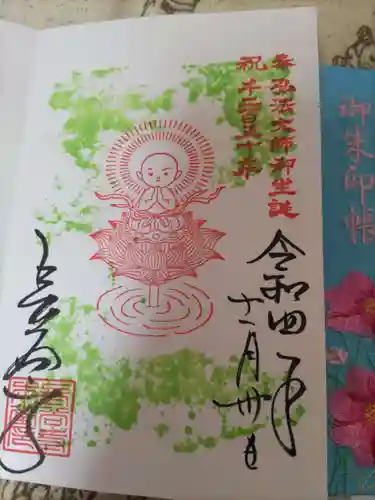 奉弘法大師御生誕
祝千二百五十年
令和四年
十一月卅日
御朱印帳